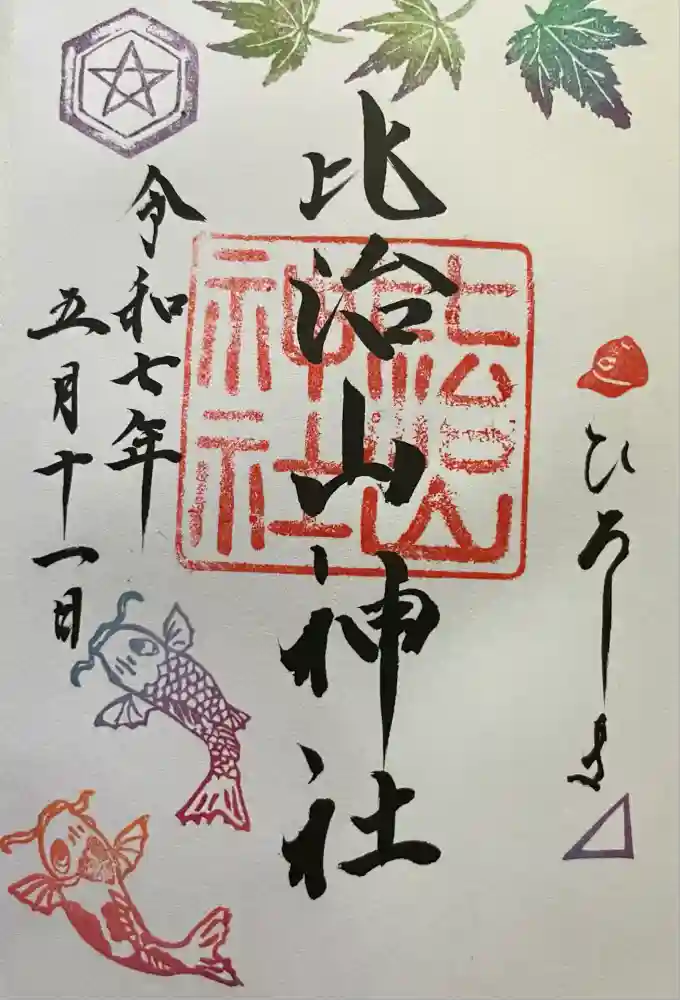 ひろしま
比治山神社
比治山神社
令和七年
五月十一日